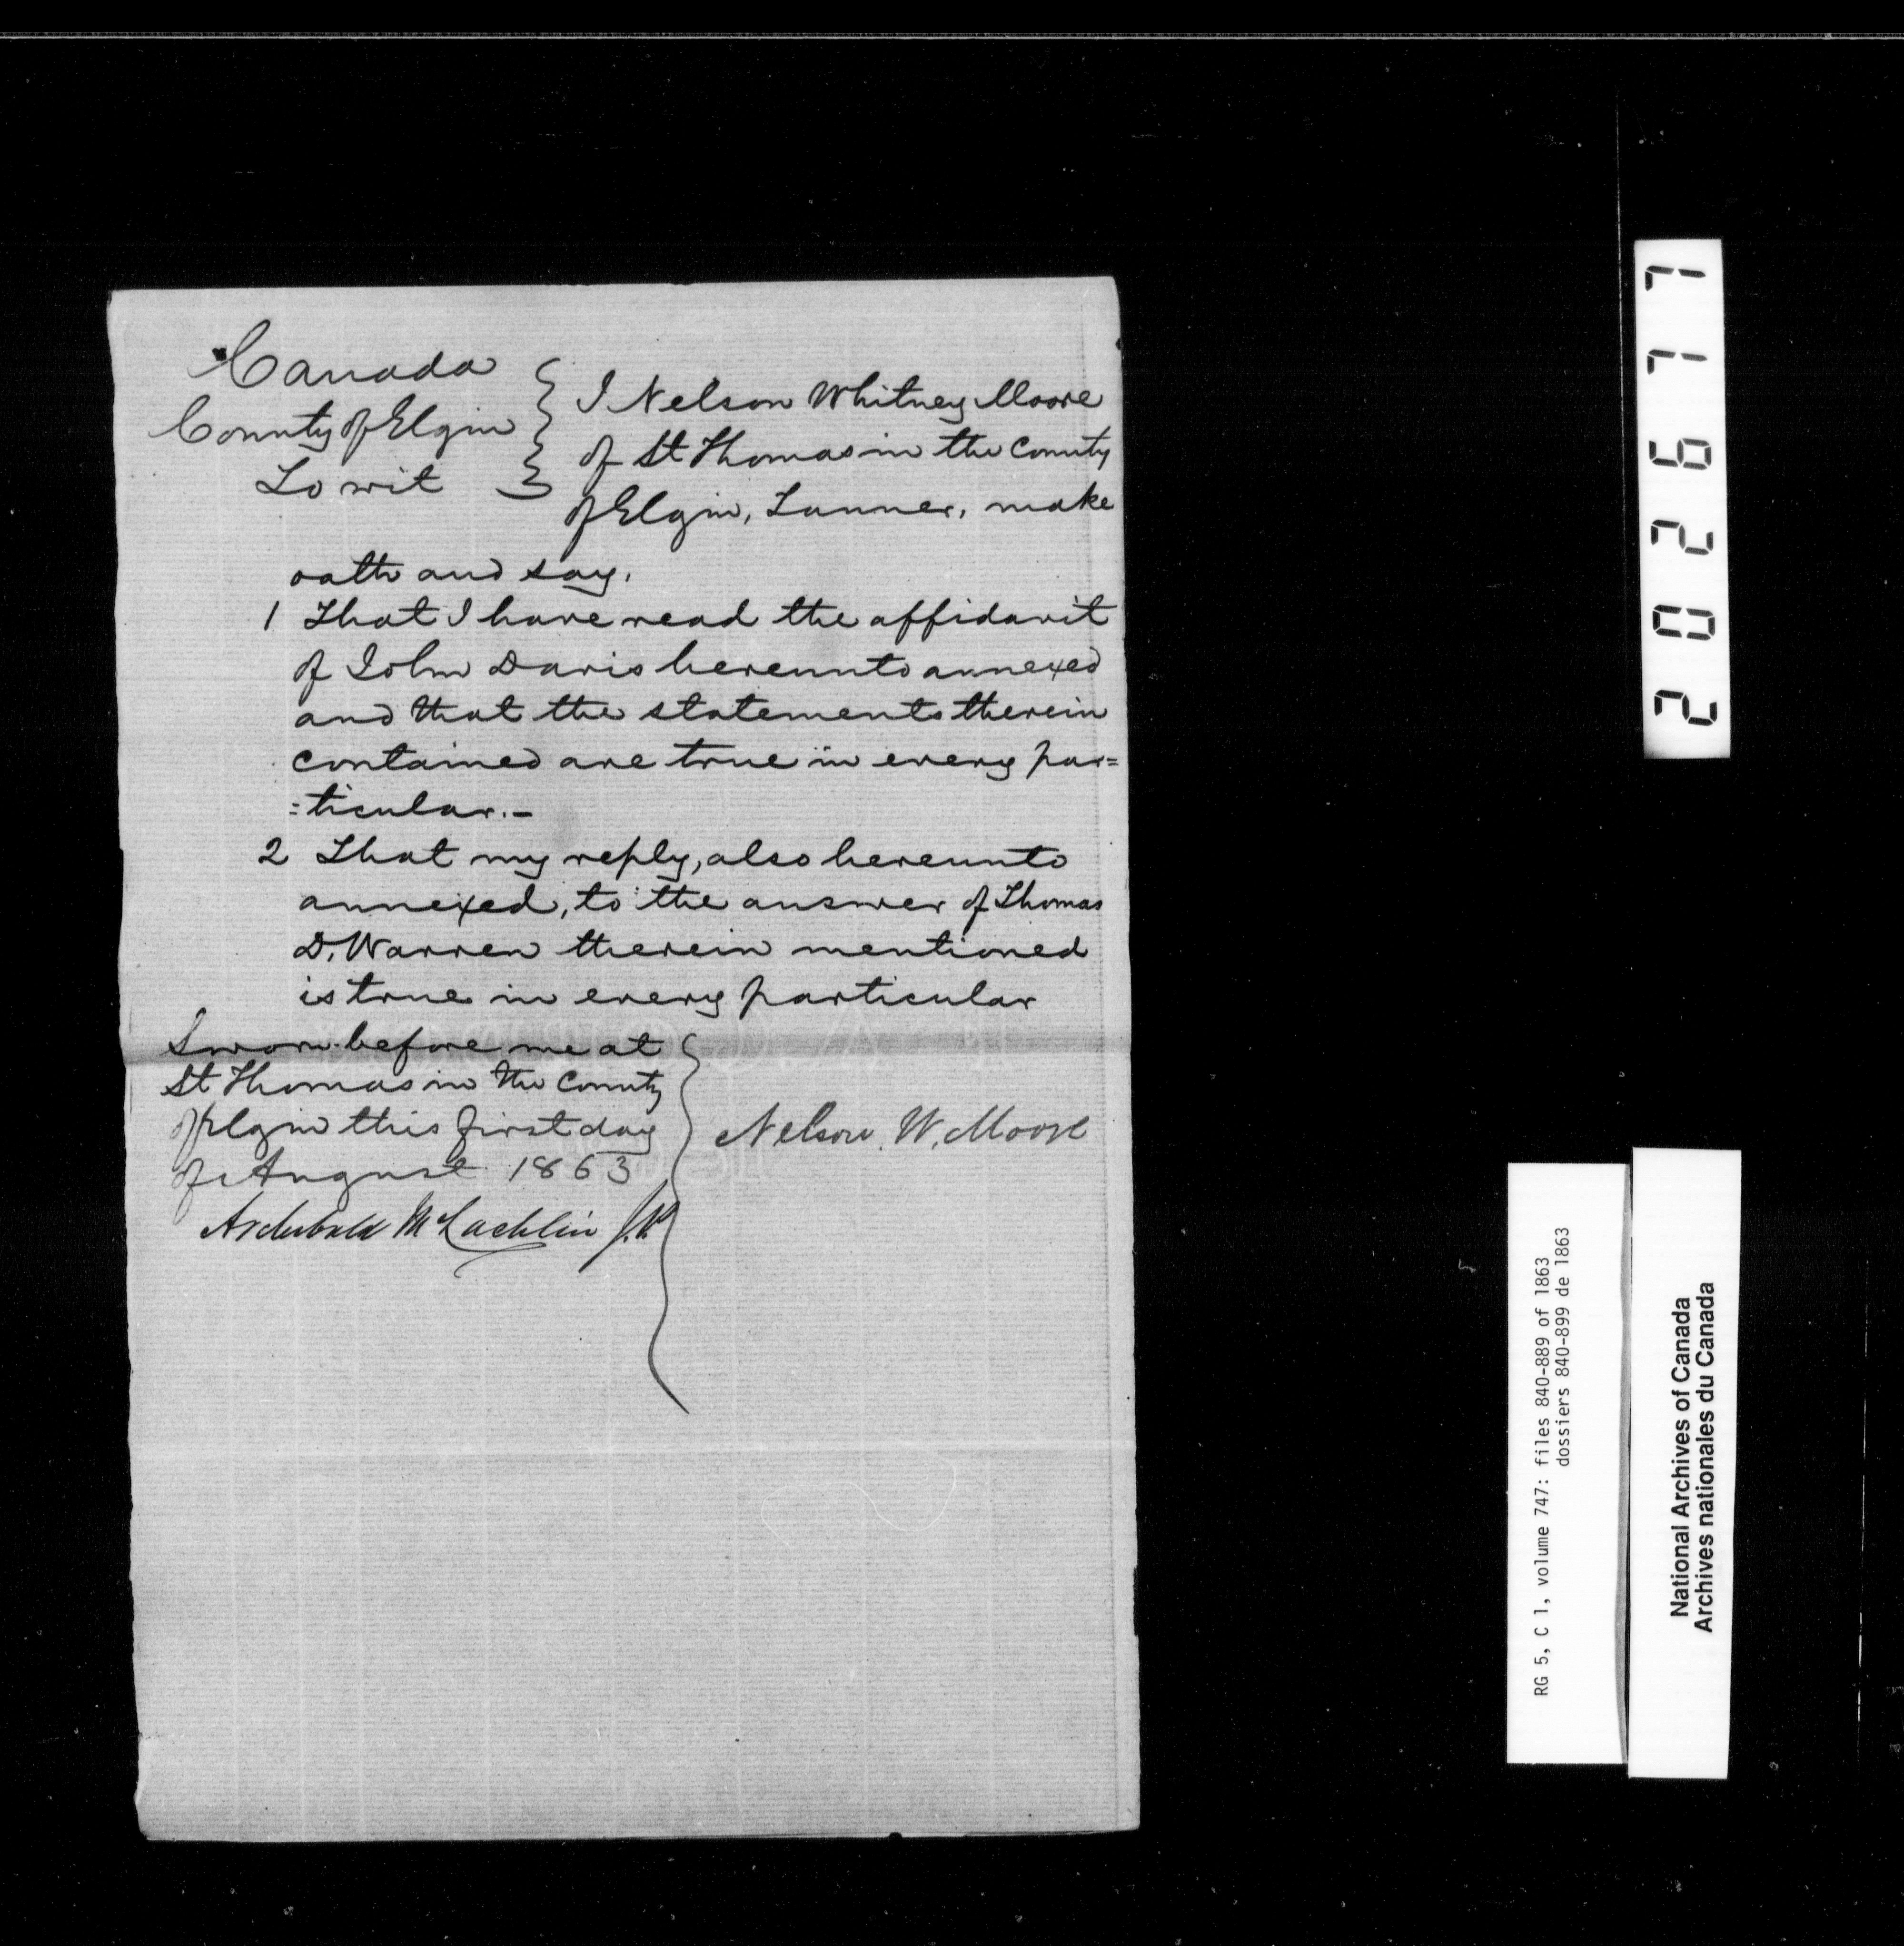 Canada
County of Elgin
To wit
I Nelson Whitney Moore
of St Thomas in the County
of Elgin, Tanner, make
oath and say.
1 That I have read the affidavit
of John Davis hereunto annexed
and that the statements therein
contained are true in every par=
=ticular.-
2 That my reply, also hereunto
annexed, to the answer of Thomas
D. Warren therein mentioned
is true in every particular
Sworn before me at
St Thomas in the County
of Elgin this first day
of August 1863
Archibald McLachlin J.P.
Nelson. W. Moore
202677
RG 5, C 1, volume 747: files 840-889 of 1863
dossiers 840-899 de 1863
National Archives of Canada
Archives nationales du Canada